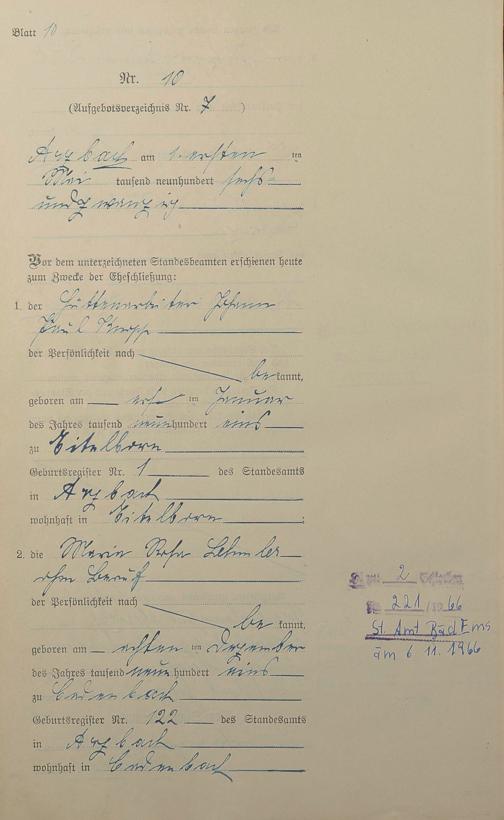 Blatt 10
Nr. 10
(Aufgebotsverzeichnis Nr. 7 )
Arzbach am 1. ersten ten
Mai tausend neunhundert sechs-
undzwanzig
Vor dem unterzeichneten Standesbeamten erschienen heute
zum Zwecke der Eheschließung:
1. der Hüttenarbeiter Johann
Paul
der Persönlichkeit nach
be kannt,
geboren am ten Januar
des Jahres tausend neunhundert eins
zu Eitelborn
Geburtsregister Nr. 1 des Standesamts
in Arzbach
wohnhaft in Eitelborn ;
2. die Maria Rosa
ohne Beruf
der Persönlichkeit nach
be kannt,
geboren am achten ten Dezember
des Jahres tausend neun hundert eins
zu Cadenbach
Geburtsregister Nr. 122 des Standesamts
in Arzbach
wohnhaft in Cadenbach
2
221 /1966
St. Amt Bad Ems
am 6. 11. 1966